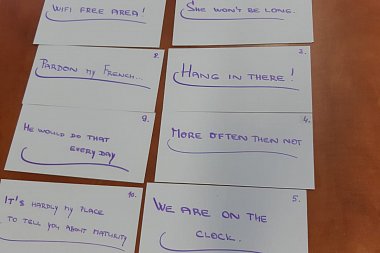 WIFI FREE AREA!
8.
PARDON MY FRENCH...
9.
HE WOULD DO THAT
EVERY DAY
10.
IT'S HARDLY MY PLACE
TO TELL YOU ABOUT MATURITY
SHE WON'T BE LONG.
3.
HANG IN THERE!
4.
MORE OFTEN THEN NOT
5.
WE ARE ON THE
CLOCK.